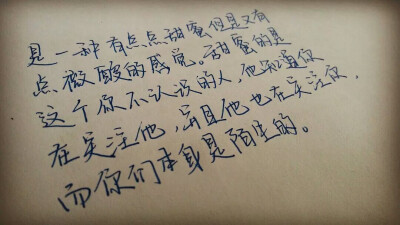 是一种有点点甜蜜但是又有
点微酸的感觉。甜蜜的是
这个你不认识的人，他知道你
在关注他，并且他也在关注你，
而你们本身是陌生的。